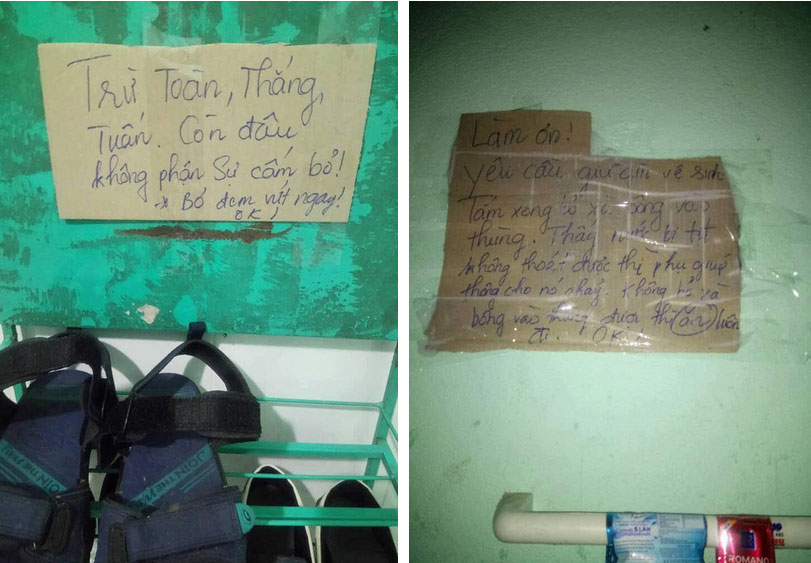 Trừ Toàn, Thắng,
Tuấn. Còn đâu
không phận sự cấm bỏ!
* Bỏ đem vứt ngay!
OK!
JOIN THE
JOIN THE
Làm ơn!
Yêu cầu giữ gìn vệ sinh
Tắm xong bỏ xà bông vào
thùng. Thấy nước bị tịt
không thoát được thì phụ giúp
thông cho nó chạy. Không bỏ xà
bông vào thùng được thì (ăn) luôn
đi. OK!
5 LẦN
ROMANO